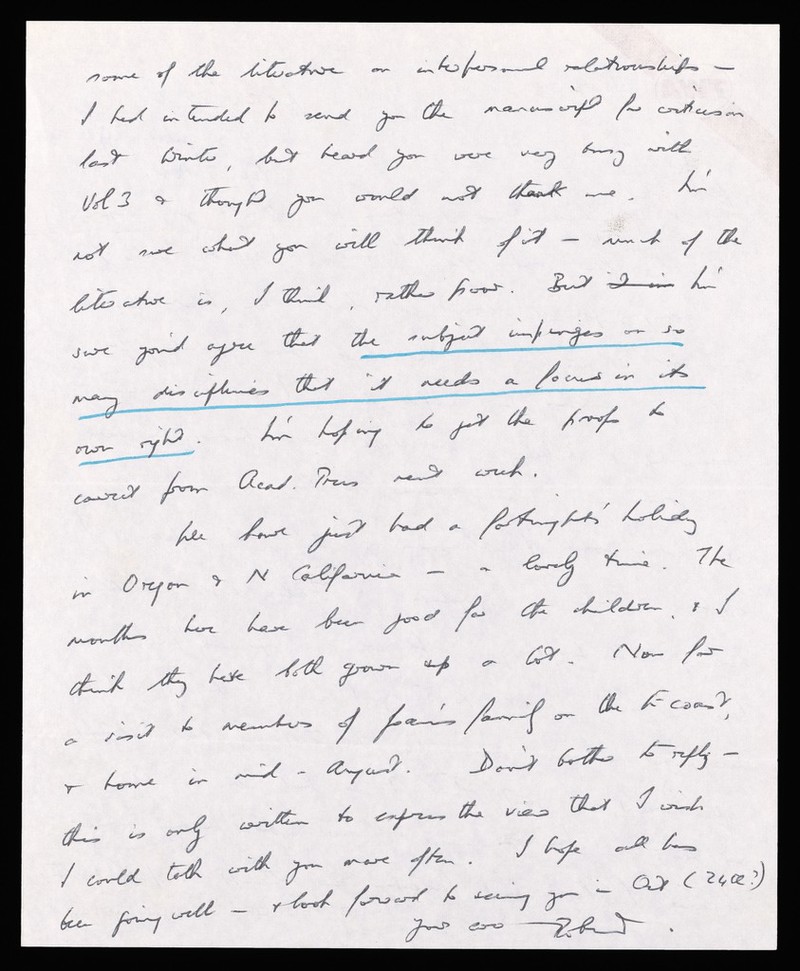 some of the literature on interpersonal relationships —
I had intended to send you the manuscript for criticism
last winter, but heard you were very busy with
Vol 3 & thought you would not thank me. I'm
not sure what you will think of it — much of the
literature is, I think, rather poor. But I'm
sure you'd agree that the subject impinges on so
many disciplines that it needs a focus in its
own right. I'm hoping to get the proofs to
correct from Acad. Press next week.
We have just had a fortnight's holiday
in Oregon & N California — a lovely time. The
months here have been good for the children, & I
think they have both grown up a lot. Now for
a visit to members of family on the E coast,
& home in mid-August. Don't bother to reply —
this is only written to express the view that I wish
I could talk with you more often. I hope all has
been going well — & look forward to seeing you in Oct (24th?)
Yours ever Robert.